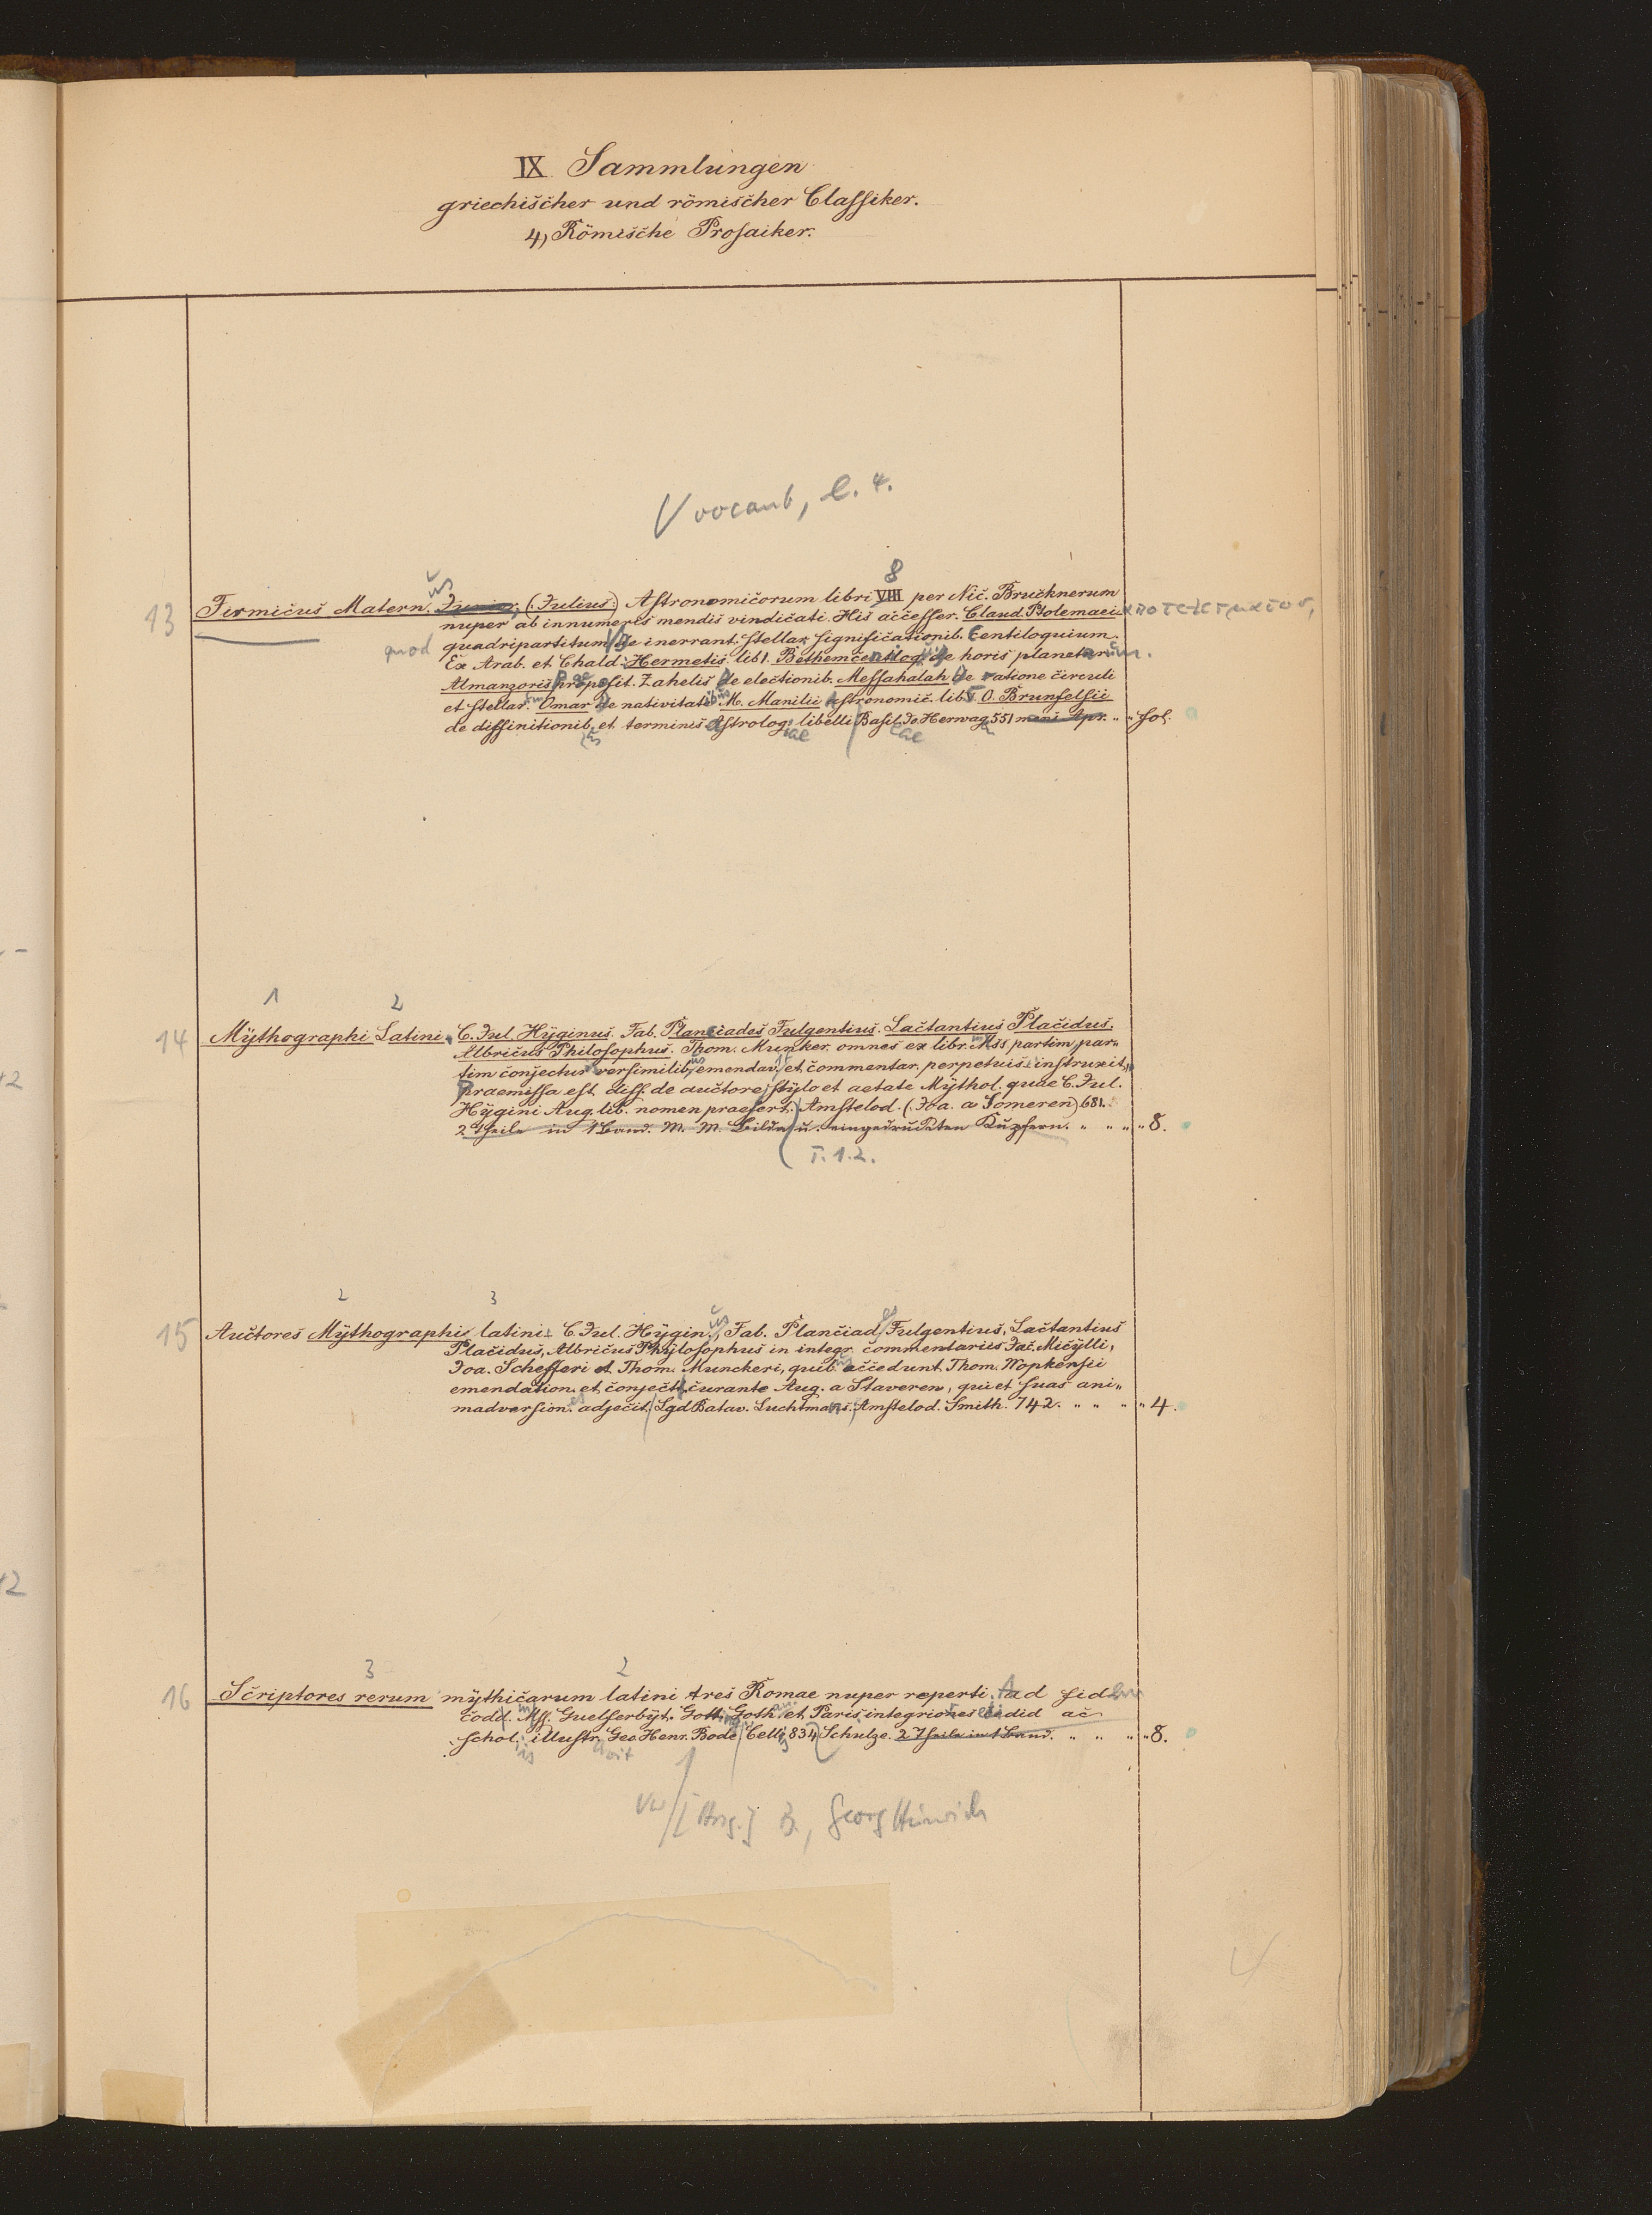 IX. Sammlungen
griechischer und römischer Classiker.
4, Römische Prosaiker.
8
13 Firmicus Matern. Junior, (Julius) Astronomicorum libri VIII per Nic. Bruchnerum
nuper ab innumeris mendis vindicati. His accesser. Claud. Ptolemaei
quod quadripartitum de inerrant. stellar. significationib. Centiloquium.
Ex Arab. et Chald: Hermetis lib 1. Bethem centilog. de horis planetar
Almanzoris proposit. Zahelis de electionib. Messahalah de ratione circuli
et stellar. Omar de nativitatib. M. Manilii Astronomic. lib. V. O. Brunfelsii
de diffinitionib. et terminis Astrolog. libelli Basil. Jo Herwag. 551 mens. Apr. " " fol.
1 2
14 Mythographi Latini. C. Jul. Hyginus. Fab. Planciades Fulgentius. Lactantius Placidus.
Albricus Philosophus. Thom. Munker. omnes ex libr. Mss partim par-
tim conjectur versimilib. emendav. et commentar. perpetuis instruxit,
Praemissa est diss. de auctore, stylo et aetate Mythol. quae C. Jul.
Hygini Aug. lib. nomen praefert. Amstelod. (Joa. a Someren) 681.
2 Theile in 1 Band. M. M. Bilde u. eingedruckten Kupfern. " " " " 8.
T. 1. 2.
2 3
15 Auctores Mythographi latini. C. Jul. Hygin., Fab. Planciad. Fulgentius, Lactantius
Placidus, Albricus Phylosophus in integr. commentariis Jac. Micylli,
Joa. Schefferi et Thom. Munckeri, quib. accedunt Thom. Wopkensii
emendation. et conject. curante Aug. a Staveren, qui et suas ani-
madversion. adjecit. Lgd Batav. Luchtmans. Amstelod. Smith. 742. " " " " 4.
3 2
16 Scriptores rerum mythicarum latini tres Romae nuper reperti. Ad fid
codd. Mss. Guelferbyt. Gotting. Goth. et Paris integriores edid ac
schol. illustr. Geo. Henr. Bode Cellis 834 Schulze. 2 Theile in 1 Band. " " " " 8.
Georg Heinrich